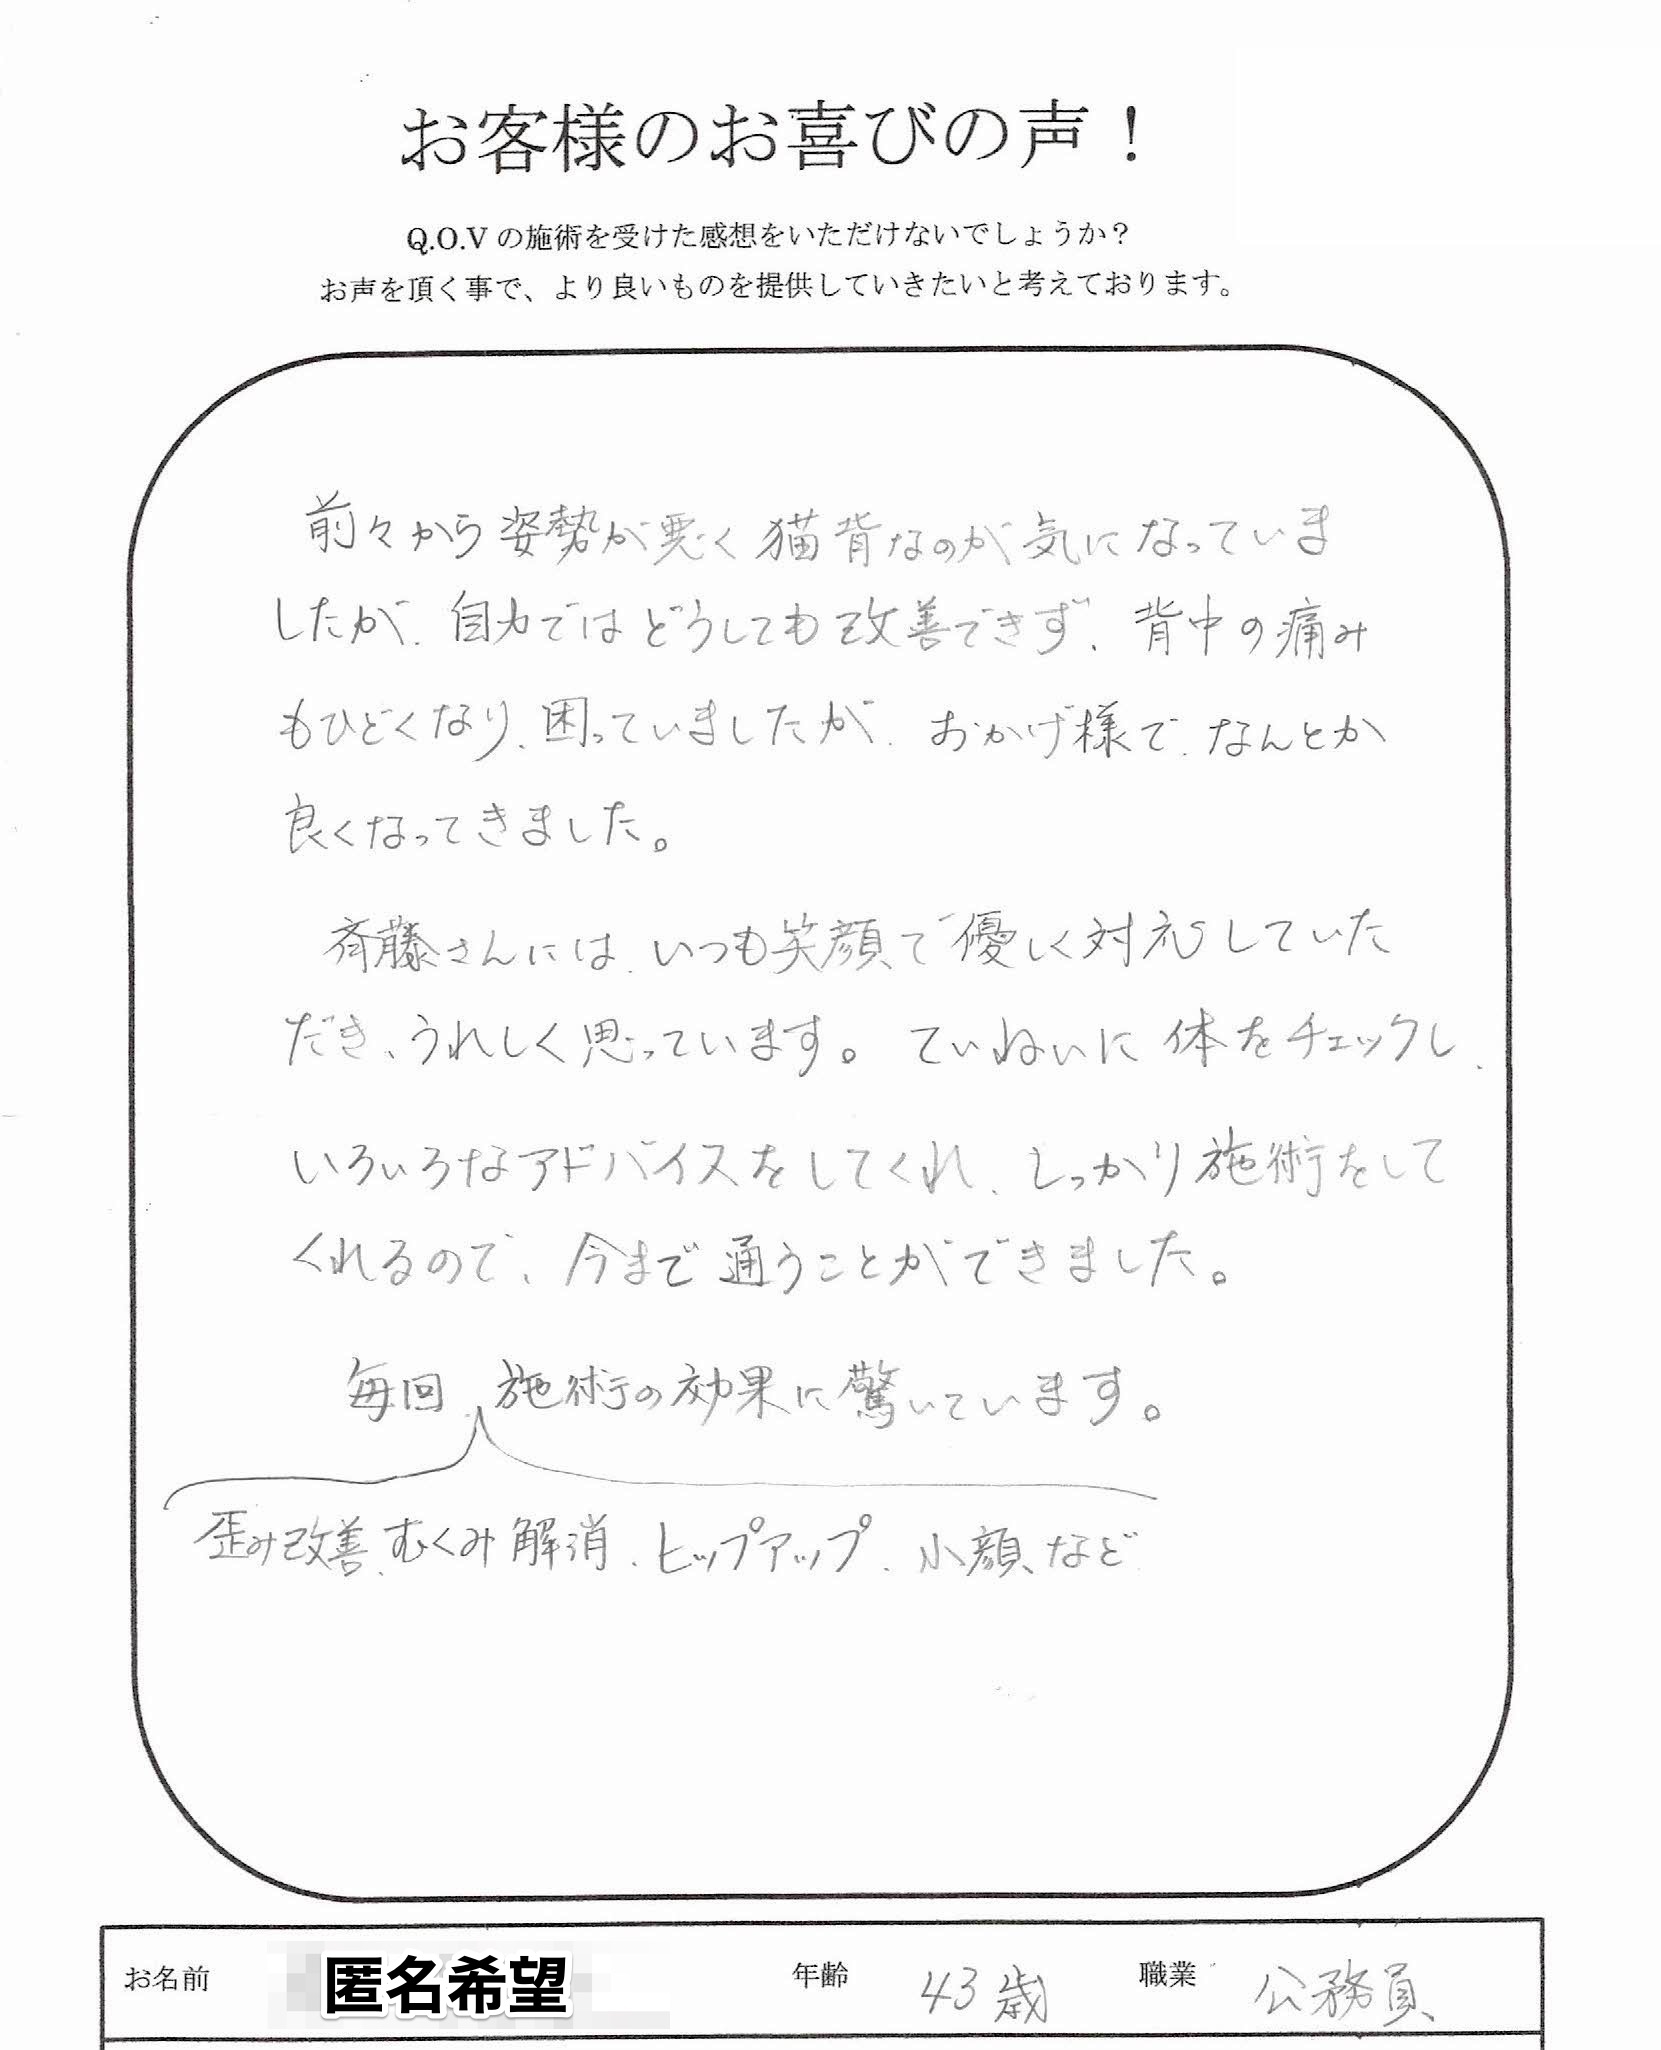 お客様のお喜びの声！
Q.O.Vの施術を受けた感想をいただけないでしょうか？
お声を頂く事で、より良いものを提供していきたいと考えております。
前々から姿勢が悪く猫背なのが気になっていま
したが、自力ではどうしても改善できず、背中の痛み
もひどくなり、困っていましたが、おかげ様で、なんとか
良くなってきました。
斉藤さんには、いつも笑顔で優しく対応していた
だき、うれしく思っています。ていねいに体をチェックし、
いろいろなアドバイスをしてくれ、しっかり施術をして
くれるので、今まで通うことができました。
毎回、施術の効果に驚いています。
歪み改善、むくみ解消、ヒップアップ、小顔など
お名前 匿名希望 年齢 43歳 職業 公務員